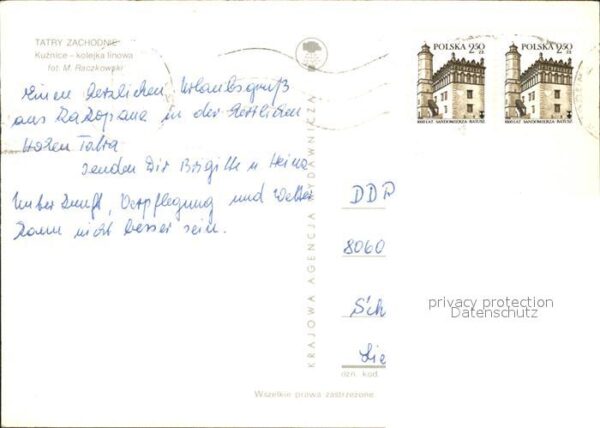 TATRY ZACHODNIE
Kuźnice - kolejka linowa
fot. M. Raczkowski
Einen herzlichen Urlaubsgruß
aus Zakopana in der herrlichen
Hohen Tatra
senden Dir Brigitte u. Heinz
Unterkunft, Verpflegung und Wetter
kann nicht besser sein.
KRAJOWA AGENCJA WYDAWNICZA
POLSKA 2,50 ZŁ
1000 LAT SANDOMIERZA RATUSZ
POLSKA 2,50 ZŁ
1000 LAT SANDOMIERZA RATUSZ
DDR
8060
Sch
Lie
ozn. kod.
privacy protection
Datenschutz
Wszelkie prawa zastrzeżone